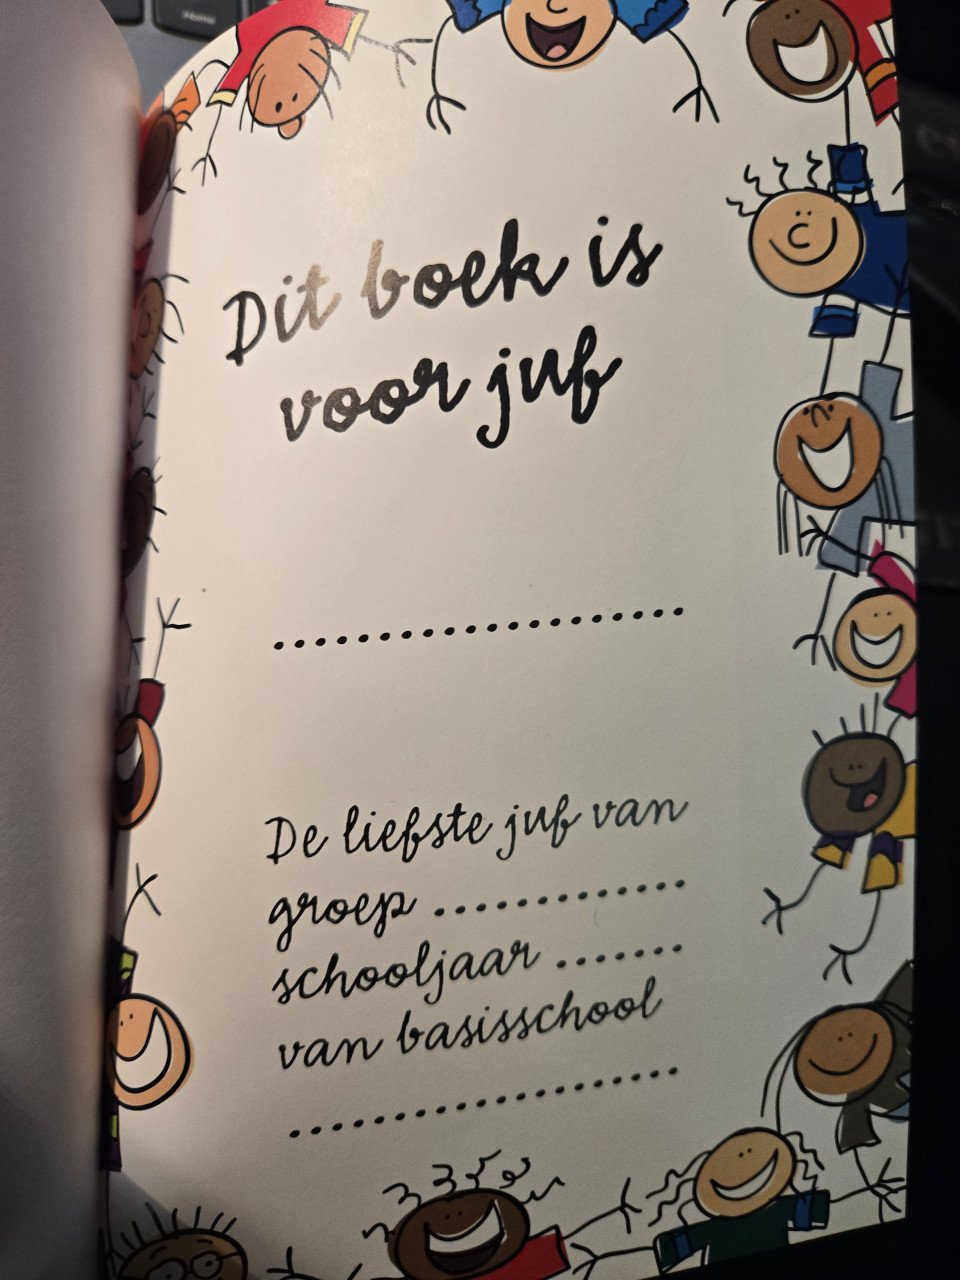 Home
Dit boek is
voor juf
...................
De liefste juf van
groep ............
schooljaar .......
van basisschool
...................